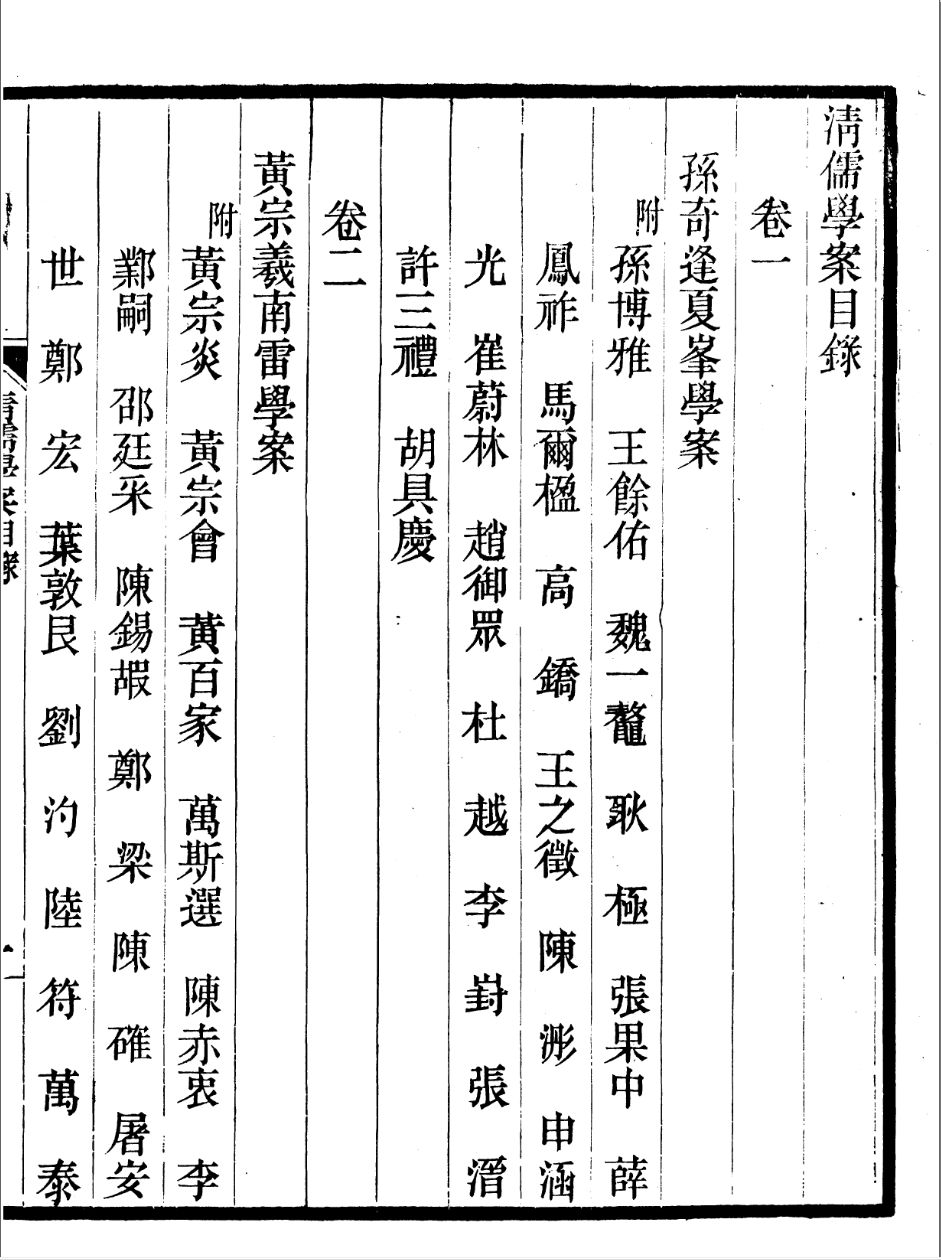 清儒學案目錄
卷一
孫奇逢夏峯學案
附 孫博雅 王餘佑 魏一鼇 耿 極 張果中 薛
鳳祚 馬爾楹 高 鐈 王之徵 陳 浵 申涵
光 崔蔚林 趙御眾 杜 越 李 崶 張 潛
許三禮 胡具慶
卷二
黃宗羲南雷學案
附 黃宗炎 黃宗會 黃百家 萬斯選 陳赤衷 李
鄴嗣 邵廷采 陳錫嘏 鄭 梁 陳 確 屠安
世 鄭 宏 葉敦艮 劉 汋 陸 符 萬 泰
清儒學案目錄
一